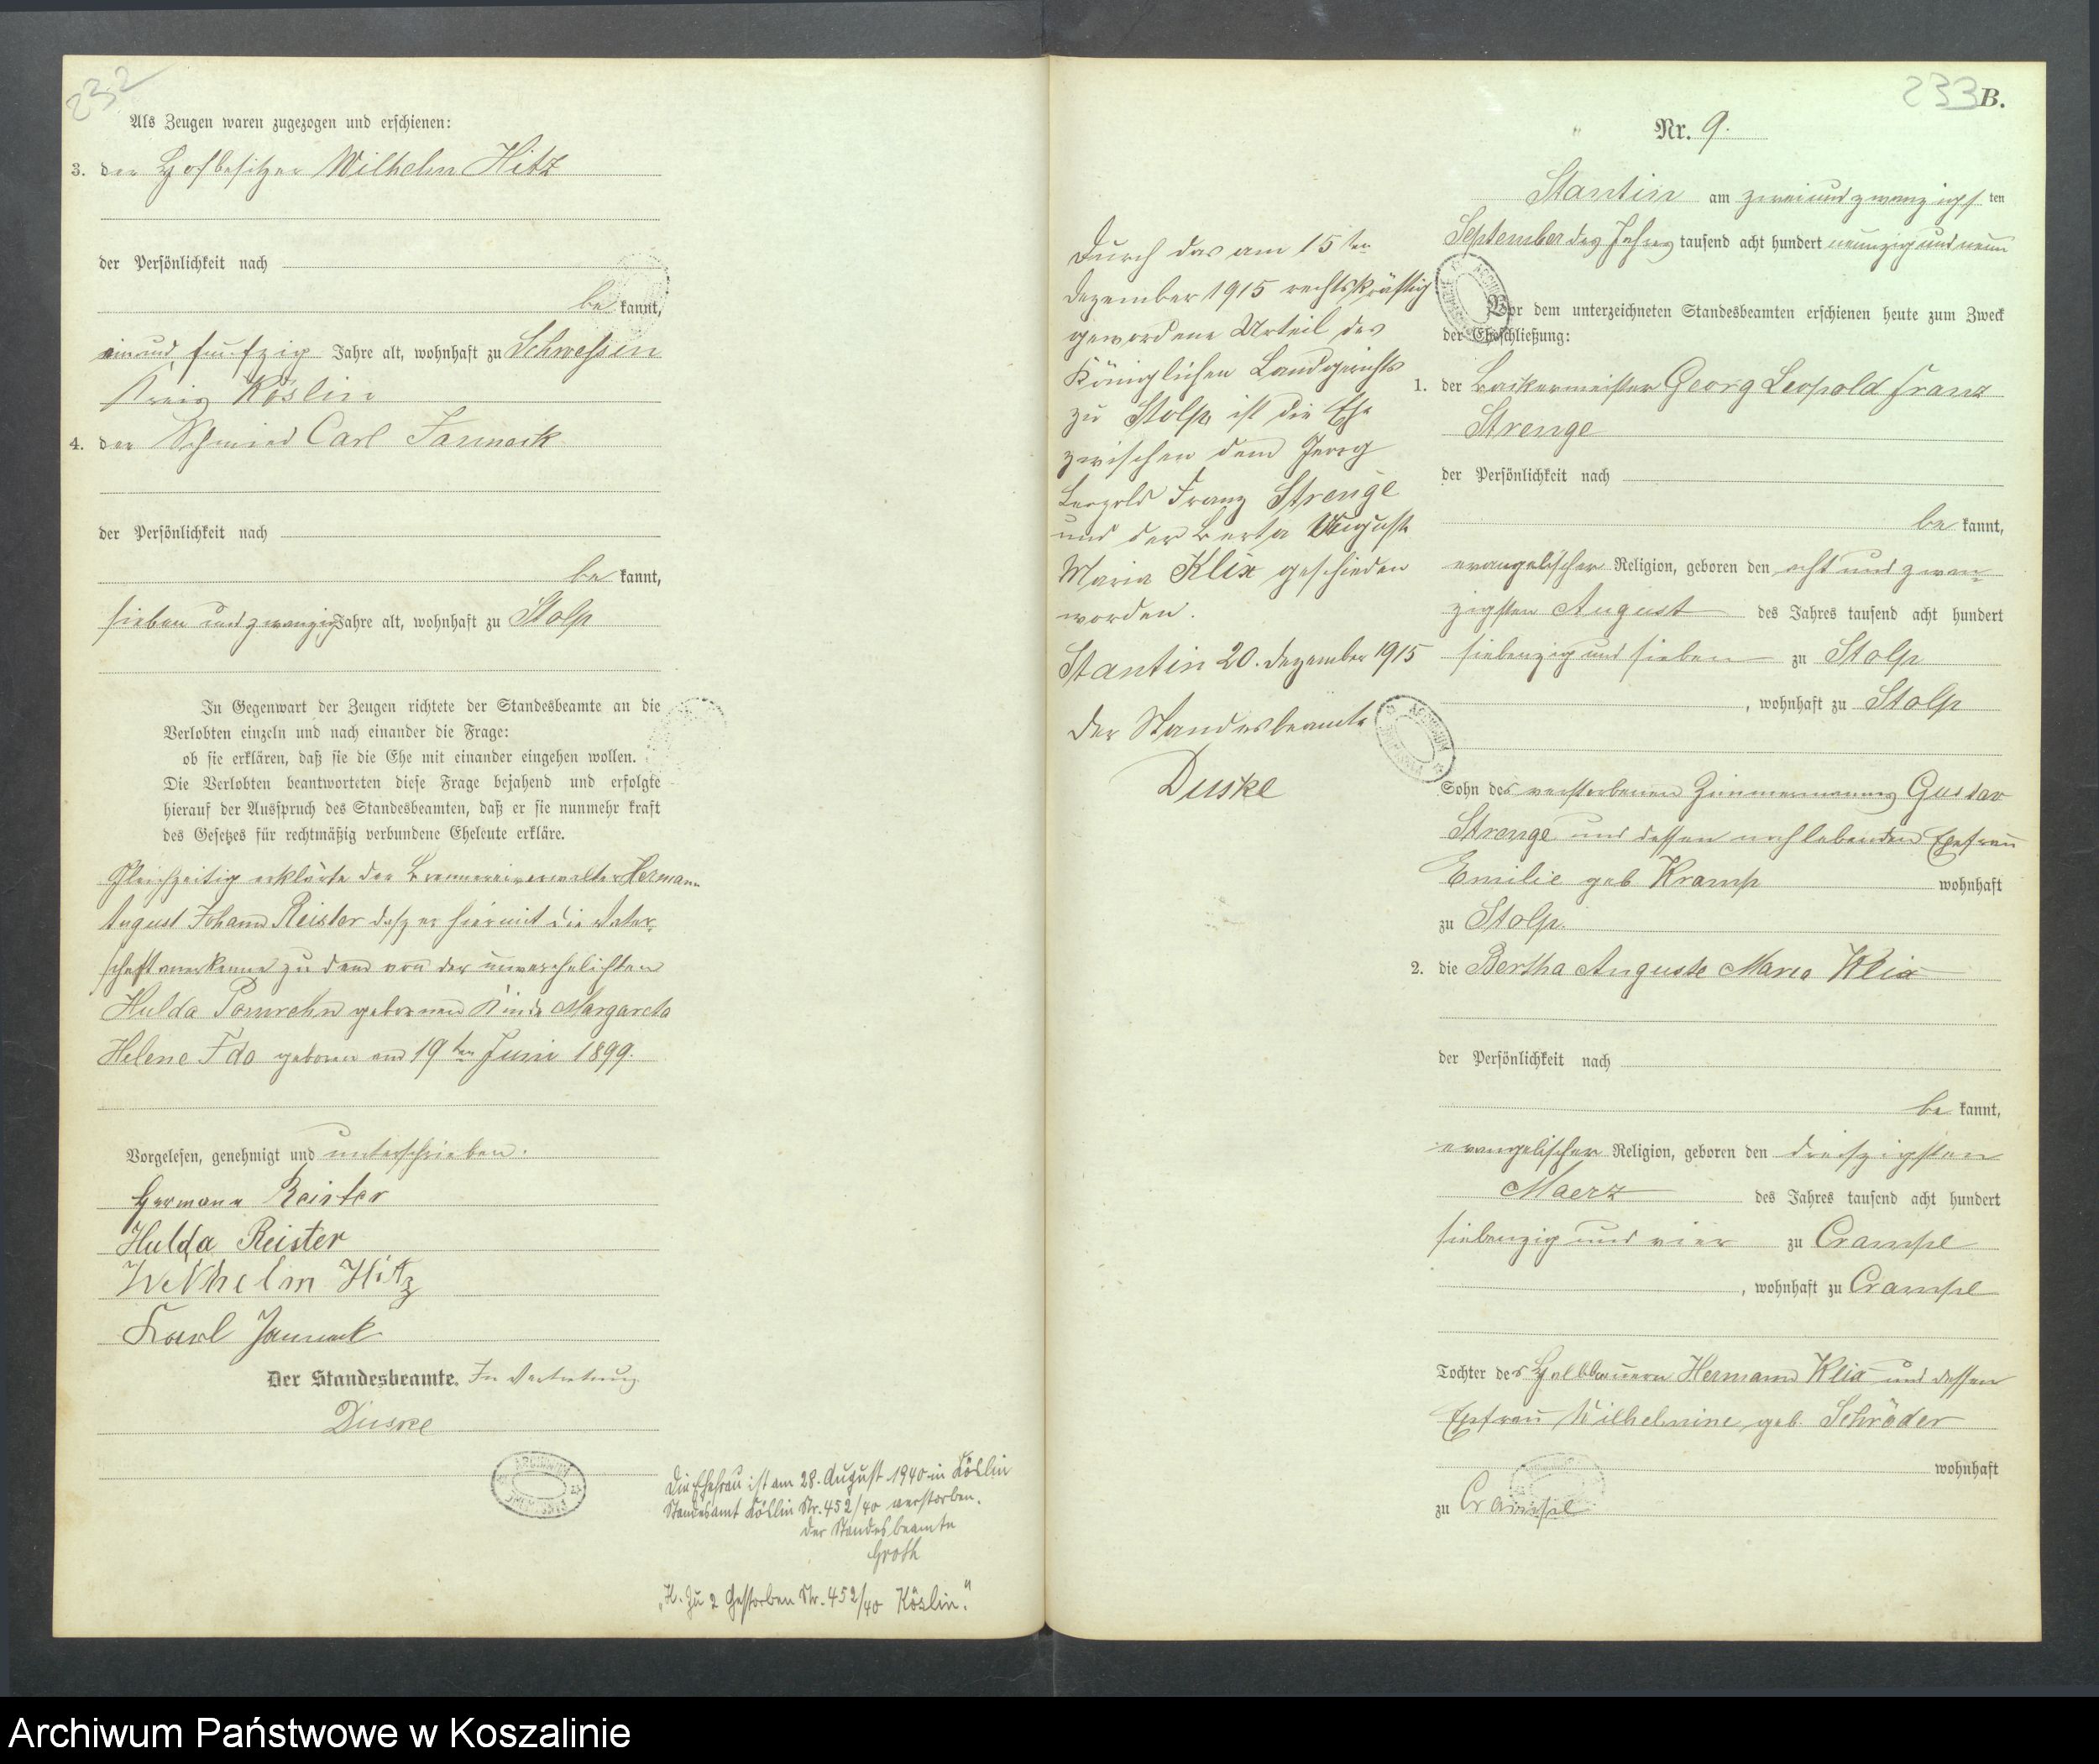 232
Als Zeugen waren zugezogen und erschienen:
3. der Hofbesitzer Wilhelm Hitz
der Persönlichkeit nach
be kannt,
einund funfzig Jahre alt, wohnhaft zu Schwessin
Kreis Köslin
4. der Schmied Carl Janneck
der Persönlichkeit nach
be kannt,
sieben und zwanzig Jahre alt, wohnhaft zu Stolp
In Gegenwart der Zeugen richtete der Standesbeamte an die
Verlobten einzeln und nach einander die Frage:
ob sie erklären, daß sie die Ehe mit einander eingehen wollen.
Die Verlobten beantworteten diese Frage bejahend und erfolgte
hierauf der Ausspruch des Standesbeamten, daß er sie nunmehr kraft
des Gesetzes für rechtmäßig verbundene Eheleute erkläre.
Gleichzeitig erklärte der Brennereiverwalter Hermann
August Johann Reister daß er hiermit die Vater-
schaft anerkenne zu dem von der unverehelichten
Hulda geborenen Kinde Margareta
Helene geboren am 19ten Juni 1899.
Vorgelesen, genehmigt und unterschrieben.
Hermann Reister
Hulda Reister
Wilhelm Hitz
Karl Janneck
Der Standesbeamte. In Vertretung
Duske
Die Ehefrau ist am 28. August 1940 in Köslin
Standesamt Köslin Nr. 452/40 verstorben.
Der Standesbeamte
Groth
„H. zu 2 Gestorben Nr. 452/40 Köslin."
233 B.
Nr. 9.
Stantin am zweiundzwanzigs ten
September des Jahres tausend acht hundert neunzig und neun
Vor dem unterzeichneten Standesbeamten erschienen heute zum Zweck
der Eheschließung:
1. der Bäckermeister Georg Leopold Franz
Strenge
der Persönlichkeit nach
be kannt,
evangelischer Religion, geboren den acht und zwan-
zigsten August des Jahres tausend acht hundert
siebenzig und sieben zu Stolp
, wohnhaft zu Stolp
Sohn des verstorbenen Zimmermanns Gustav
Strenge und dessen noch lebenden Ehefrau
Emilie geb Kramp wohnhaft
zu Stolp.
2. die Bertha Auguste Maria Klix
der Persönlichkeit nach
be kannt,
evangelischer Religion, geboren den dreißigsten
Maerz des Jahres tausend acht hundert
siebenzig und vier zu Crampe
, wohnhaft zu Crampe
Tochter des Halbbauern Hermann Klix und dessen
Ehefrau Wilhelmine geb. Schröder
wohnhaft
zu Crampe
Durch das am 15ten
Dezember 1915 rechtskräftig
gewordene Urteil des
Königlichen Landgerichts
zu Stolp ist die Ehe
zwischen dem Georg
Leopold Franz Strenge
und der Berta Auguste
Maria Klix geschieden
worden.
Stantin 20. Dezember 1915
Der Standesbeamte
Duske
Archiwum Państwowe w Koszalinie